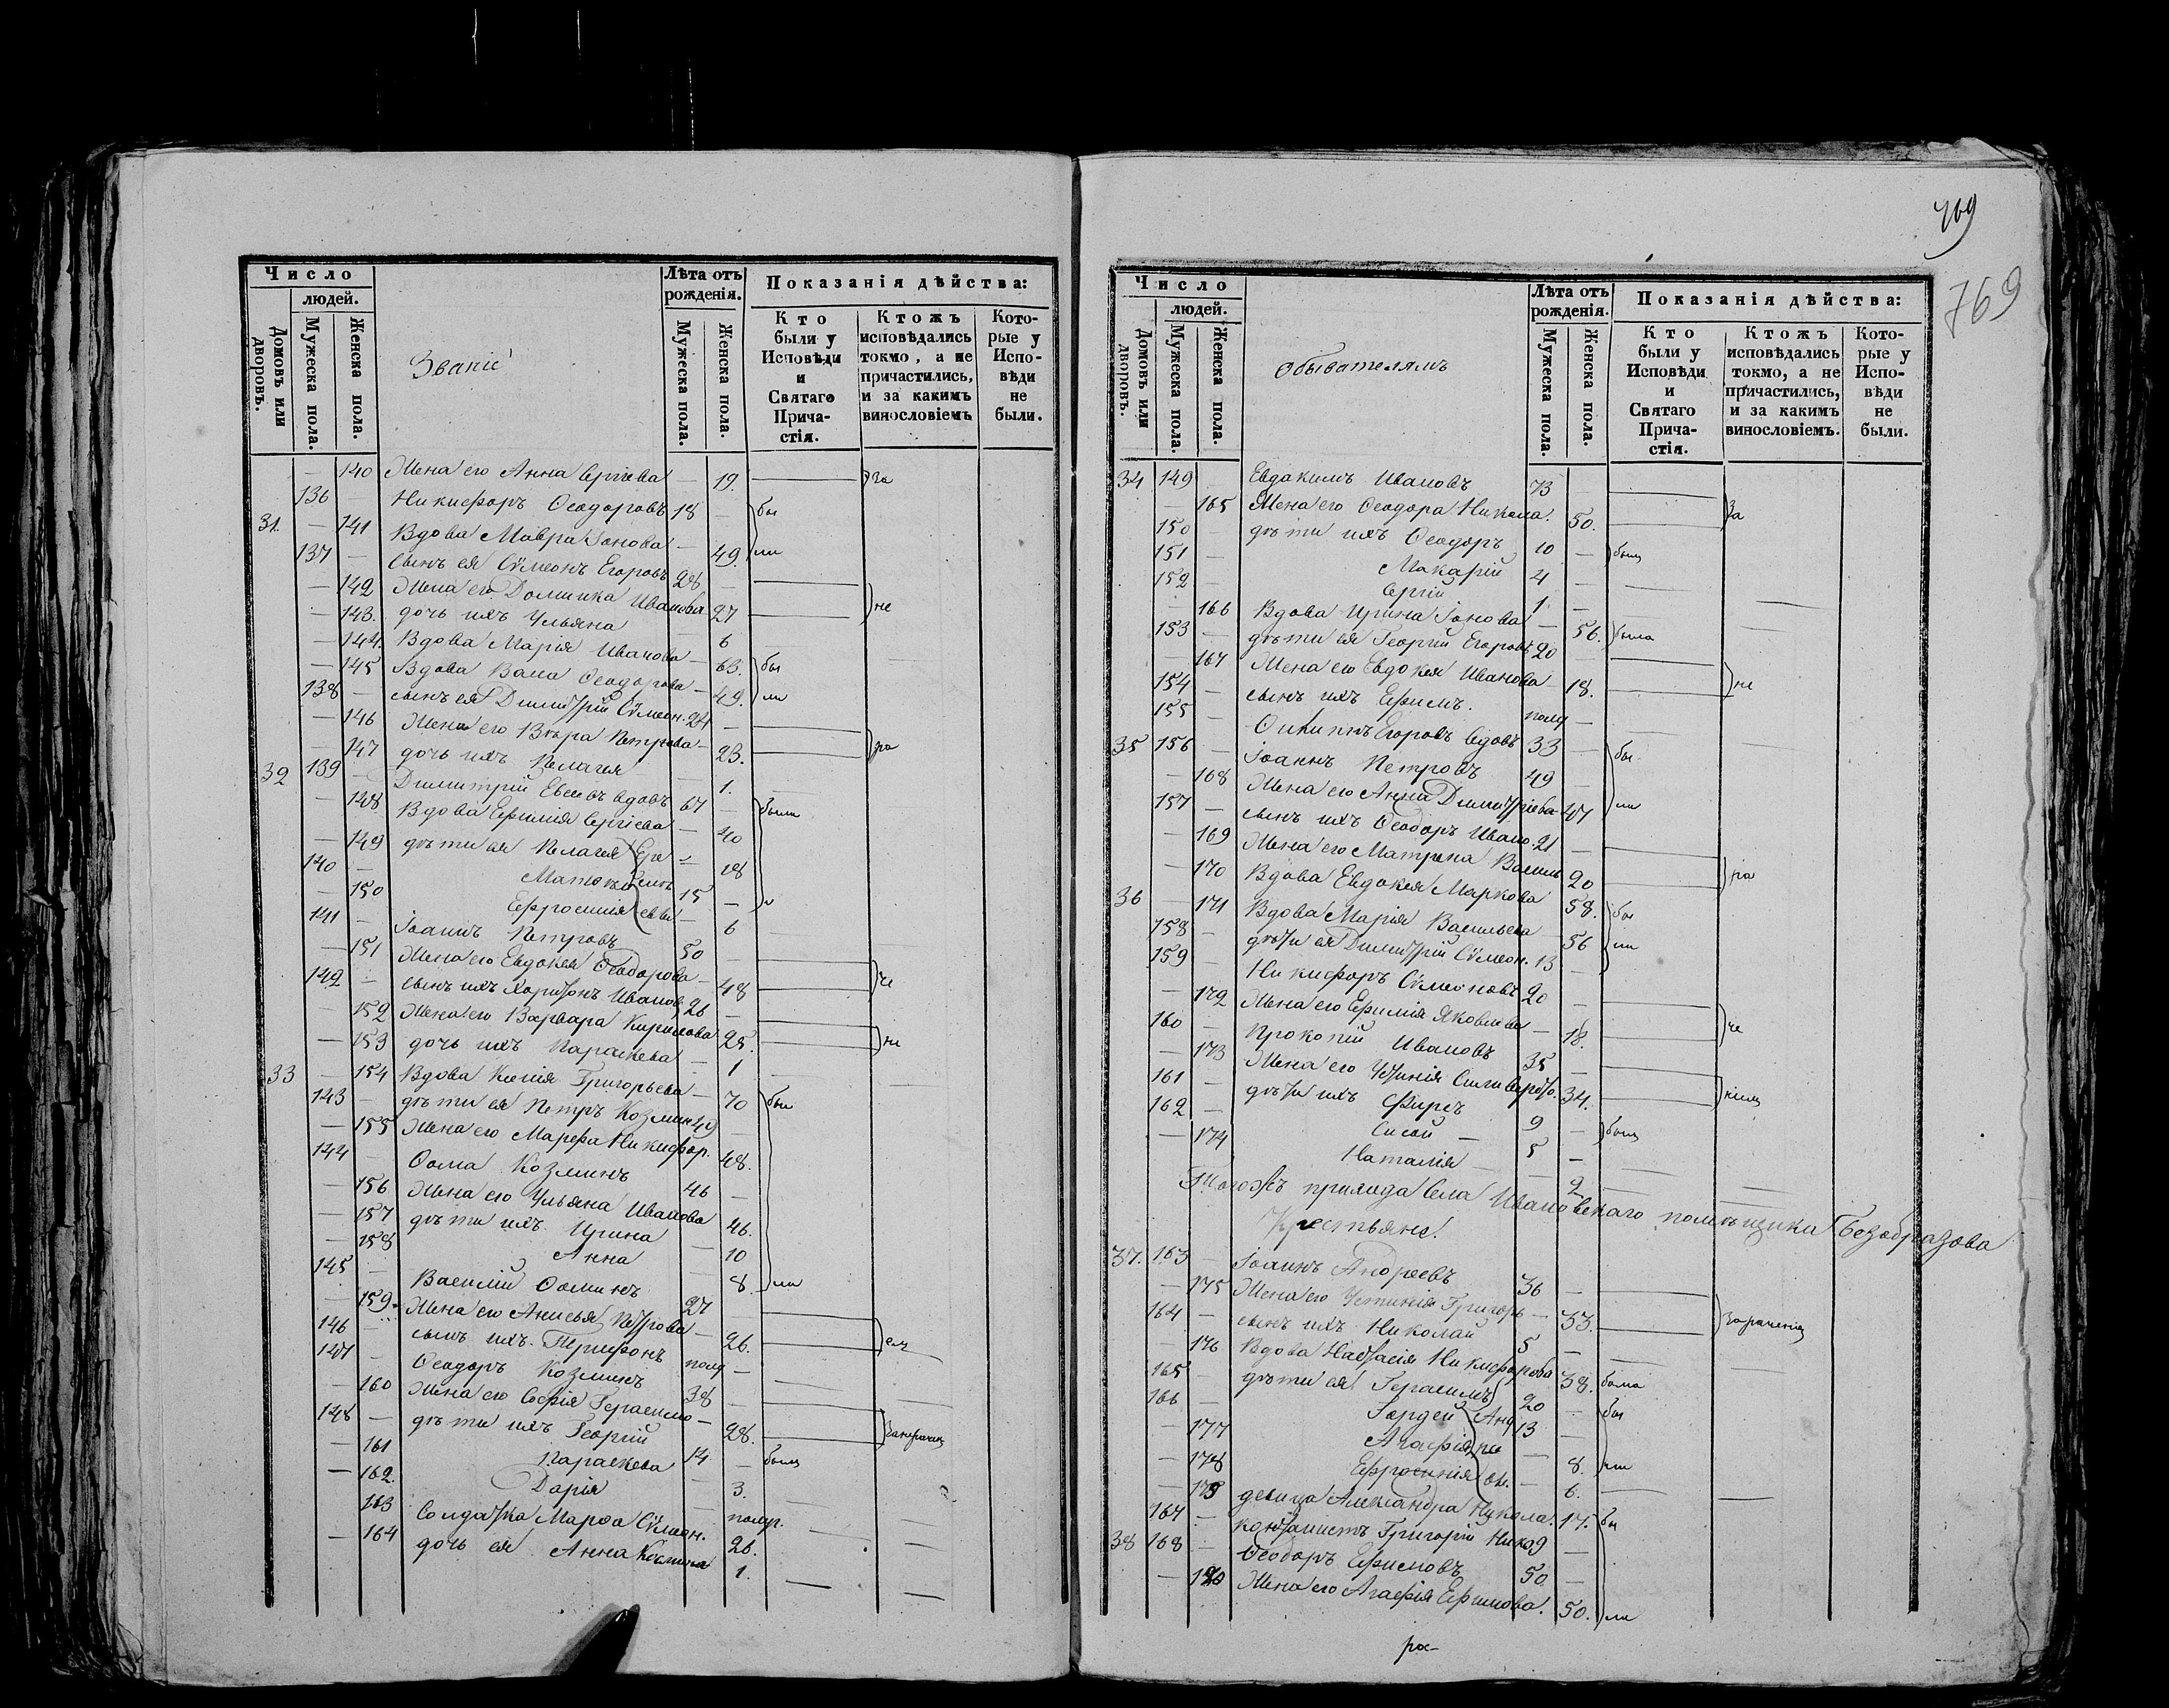 769
769
Число
людей.
Домовъ или дворовъ.
Мужеска пола.
Женска пола.
Званіе
Лѣта отъ рожденія.
Мужеска пола.
Женска пола.
Показанія дѣйства:
Кто были у Исповѣди и Святаго Прича-стія.
Ктожъ исповѣдались токмо, а не причастились, и за какимъ винословіемъ
Кото-рые у Испо-вѣди не были.
— 140 Жена его Анна Сергѣева — 19. За
136 — Никифоръ Ѳеодоровъ 18 — бы
31. — 141 Вдова Мавра Іонова — 49. ли
137 — сынъ ея Сѵмеонъ Егоровъ 28 —
— 142 Жена его Домника Иванова 27 не
— 143. дочь ихъ Ульяна 6
— 144. Вдова Марія Иванова — 63. бы
— 145 Вдова Васса Ѳеодорова — 49. ли
138 — сынъ ея Димитрій Сѵмеон. 24 —
— 146 Жена его Вѣра Петрова — 23. ра
— 147 дочь ихъ Пелагея — 1.
32 139 — Димитрій Евсевъ вдовъ 67 — были
— 148 Вдова Ефимія Сергіева — 40
— 149 дѣти ея Пелагея — 18
140 — 15 —
— 150 Ефросинія — 6
141 — Іоаннъ Петровъ 50 —
— 151 Жена его Евдокея Ѳеодорова — 48 че
142 — сынъ ихъ Харитонъ Иванов. 26 —
— 152 Жена его Варвара Кирилова 25. ні
— 153 дочь ихъ Параскева — 1
33 — 154 Вдова Ксенія Григорьева — 70 бы
143 — дѣти ея Петръ Козминъ 49 —
— 155 Жена его Марѳа Никифор. 48.
144 — Ѳома Козминъ 46 —
— 156 Жена его Ульяна Иванова 46.
— 157 дѣти ихъ Ирина — 10
— 158 Анна — 8. ли
145 — Василій Ѳоминъ 27
— 159. Жена его Анисья Петрова — 26. емъ
146 — сынъ ихъ Трифонъ полд —
147 — Ѳеодоръ Козминъ 38 —
— 160 Жена его Софія Герасимо — 28.
148 — дѣти ихъ Георгій 14 — былъ
— 161 Параскева — 3.
— 162. Дарія — полд.
163 Солдатка Марѳа Сѵмеон. 26.
— 164 дочь ея Анна 1.
Число
людей.
Домовъ или дворовъ.
Мужеска пола.
Женска пола.
обывателямъ
Лѣта отъ рожденія.
Мужеска пола.
Женска пола.
Показанія дѣйства:
Кто были у Исповѣди и Святаго Прича-стія.
Ктожъ исповѣдались токмо, а не причастились, и за какимъ винословіемъ.
Кото-рые у Испо-вѣди не были.
34 149 — Евдокимъ Ивановъ 73 —
— 165 Жена его Ѳеодора Никола. 50. За
150 — дѣти ихъ Ѳеодоръ 10 — былъ
151 — Макарій 4 —
152 — Сергій 1 —
— 166 Вдова Ирина Іонова — 56. была
153 — дѣти ея Георгій Егоровъ 20 —
— 167 Жена его Евдокея Иванова — 18. не
154 — сынъ ихъ Ефимъ. полд —
155 — Егоровъ вдовъ 33 — бы
35 156 — Іоаннъ Петровъ 49 —
— 168 Жена его Анна Димитріева 47 ли
157 — сынъ ихъ Ѳеодоръ Ивано. 21 —
— 169 Жена его Матрена Василь 20 ра
— 170 Вдова Евдокея Маркова 58. бы
36 — 171 Вдова Марія Васильева — 56 ли
158 — дѣти ея Димитрій Сѵмеон. 13 —
159 — Никифоръ Сѵмеоновъ 20 —
— 172 Жена его Ефимія Яковлева — 18. че
160 — Прокопій Ивановъ 35 —
— 173 Жена его Устинія Силиверст. 34. ніемъ
161 — дѣти ихъ Фирсъ 9 — былъ
162 — Сисой — 5 —
— 174 Наталія — 2
Тогожъ прихода Села Ивановскаго помѣщика Безобразова
Крестьяне.
37. 163 — Іоаннъ Андреевъ 36 —
— 175 Жена его Устинія Григорь — 33. Зараченіемъ
164 — сынъ ихъ Николай 5 —
— 176 Вдова Настасія Никифорова 38. была
165 — дѣти ея Герасимъ 20 — бы
166 — Гордей 13 —
— 177 Агафія — 8. ли
— 178 Ефросинія — 6.
— 179 девица Александра Никола. 17. бы
167 — Григорій —
38 168 — Ѳеодоръ Ефимовъ 50 —
— 180 Жена его Агафія Ефимова. 50. ли
ра-